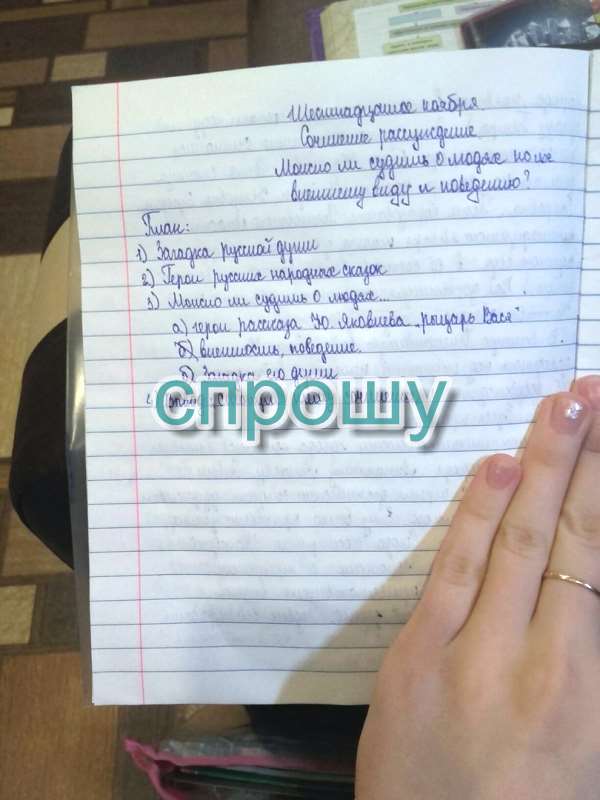 Шестнадцатое ноября
Сочинение рассуждение
Можно ли судить о людях по их
внешнему виду и поведению?
План:
1) Загадка русской души
2) Герои русских народных сказок
3) Можно ли судить о людях...
а) герои рассказа Ю. Яковлева „рыцарь Вася"
б) внешность, поведение.
в) Загадка его души
спрошу